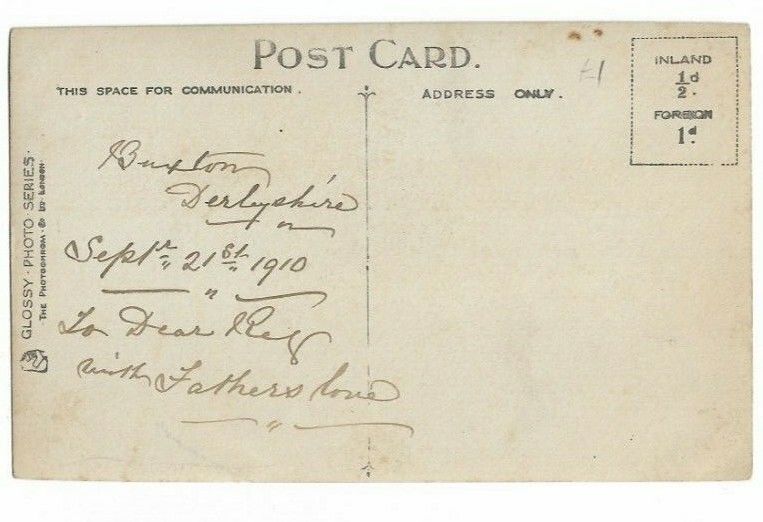 POST CARD.
£1
INLAND
½d.
FOREIGN
1d.
THIS SPACE FOR COMMUNICATION.
ADDRESS ONLY.
Buxton
Derbyshire
Septr. 21st. 1910
To Dear Reg
with Fathers love
GLOSSY · PHOTO SERIES ·
· THE PHOTOCHROM · Co LTD LONDON